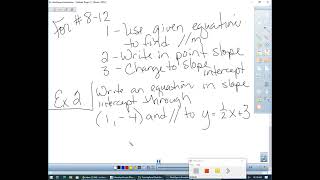 For #8-12
1 - Use given equation
to find //m
2 - Write in point slope
3 - Change to slope
intercept
Ex 2 Write an equation in slope
intercept through
(1, -4) and // to y = 1/2x+3